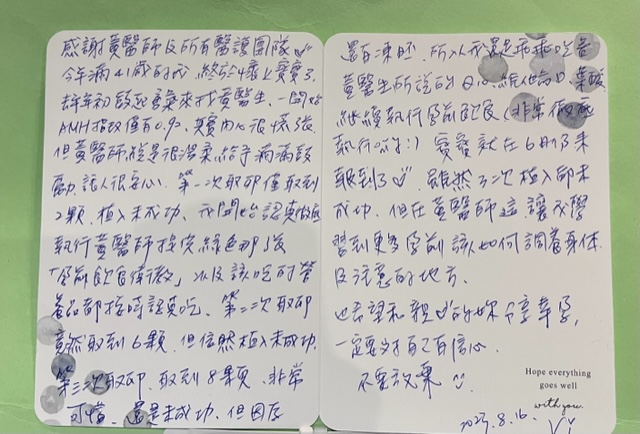 感謝黃醫師及所有醫護團隊♡
今年滿41歲的我,終於懷上寶寶了
去年初鼓起勇氣來找黃醫生,一開始
AMH指數僅有0.9,其實內心很慌張
但黃醫師總是很溫柔給予滿滿鼓
勵,讓人很安心。第一次取卵僅取到
2顆,植入未成功,我開始認真徹底
執行黃醫師提供綠色那張
「孕前飲食衛教」以及該吃的營
養品都按時認真吃,第二次取卵
竟然取到6顆,但依然植入未成功,
第三次取卵,取到8顆,非常
可惜,還是未成功,但因存
還有凍胚,所以我還是乖乖吃着
黃醫生所說的Q10、維他命D、葉酸
繼續執行孕前飲食(非常徹底
執行 :) 寶寶就在6月來
報到了♡,雖然三次植入都未
成功,但在黃醫師這讓我學
習到更多孕前該如何調養身體
及注意的地方。
也希望和親♡的妳分享幸孕,
一定要對自己有信心
不要放棄☺
Hope everything
goes well
with you.
2023.8.16.